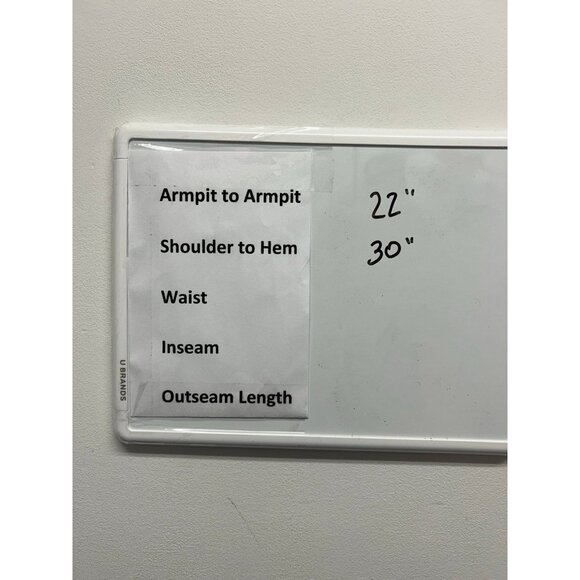 Armpit to Armpit 22"
Shoulder to Hem 30"
Waist
Inseam
Outseam Length
U BRANDS